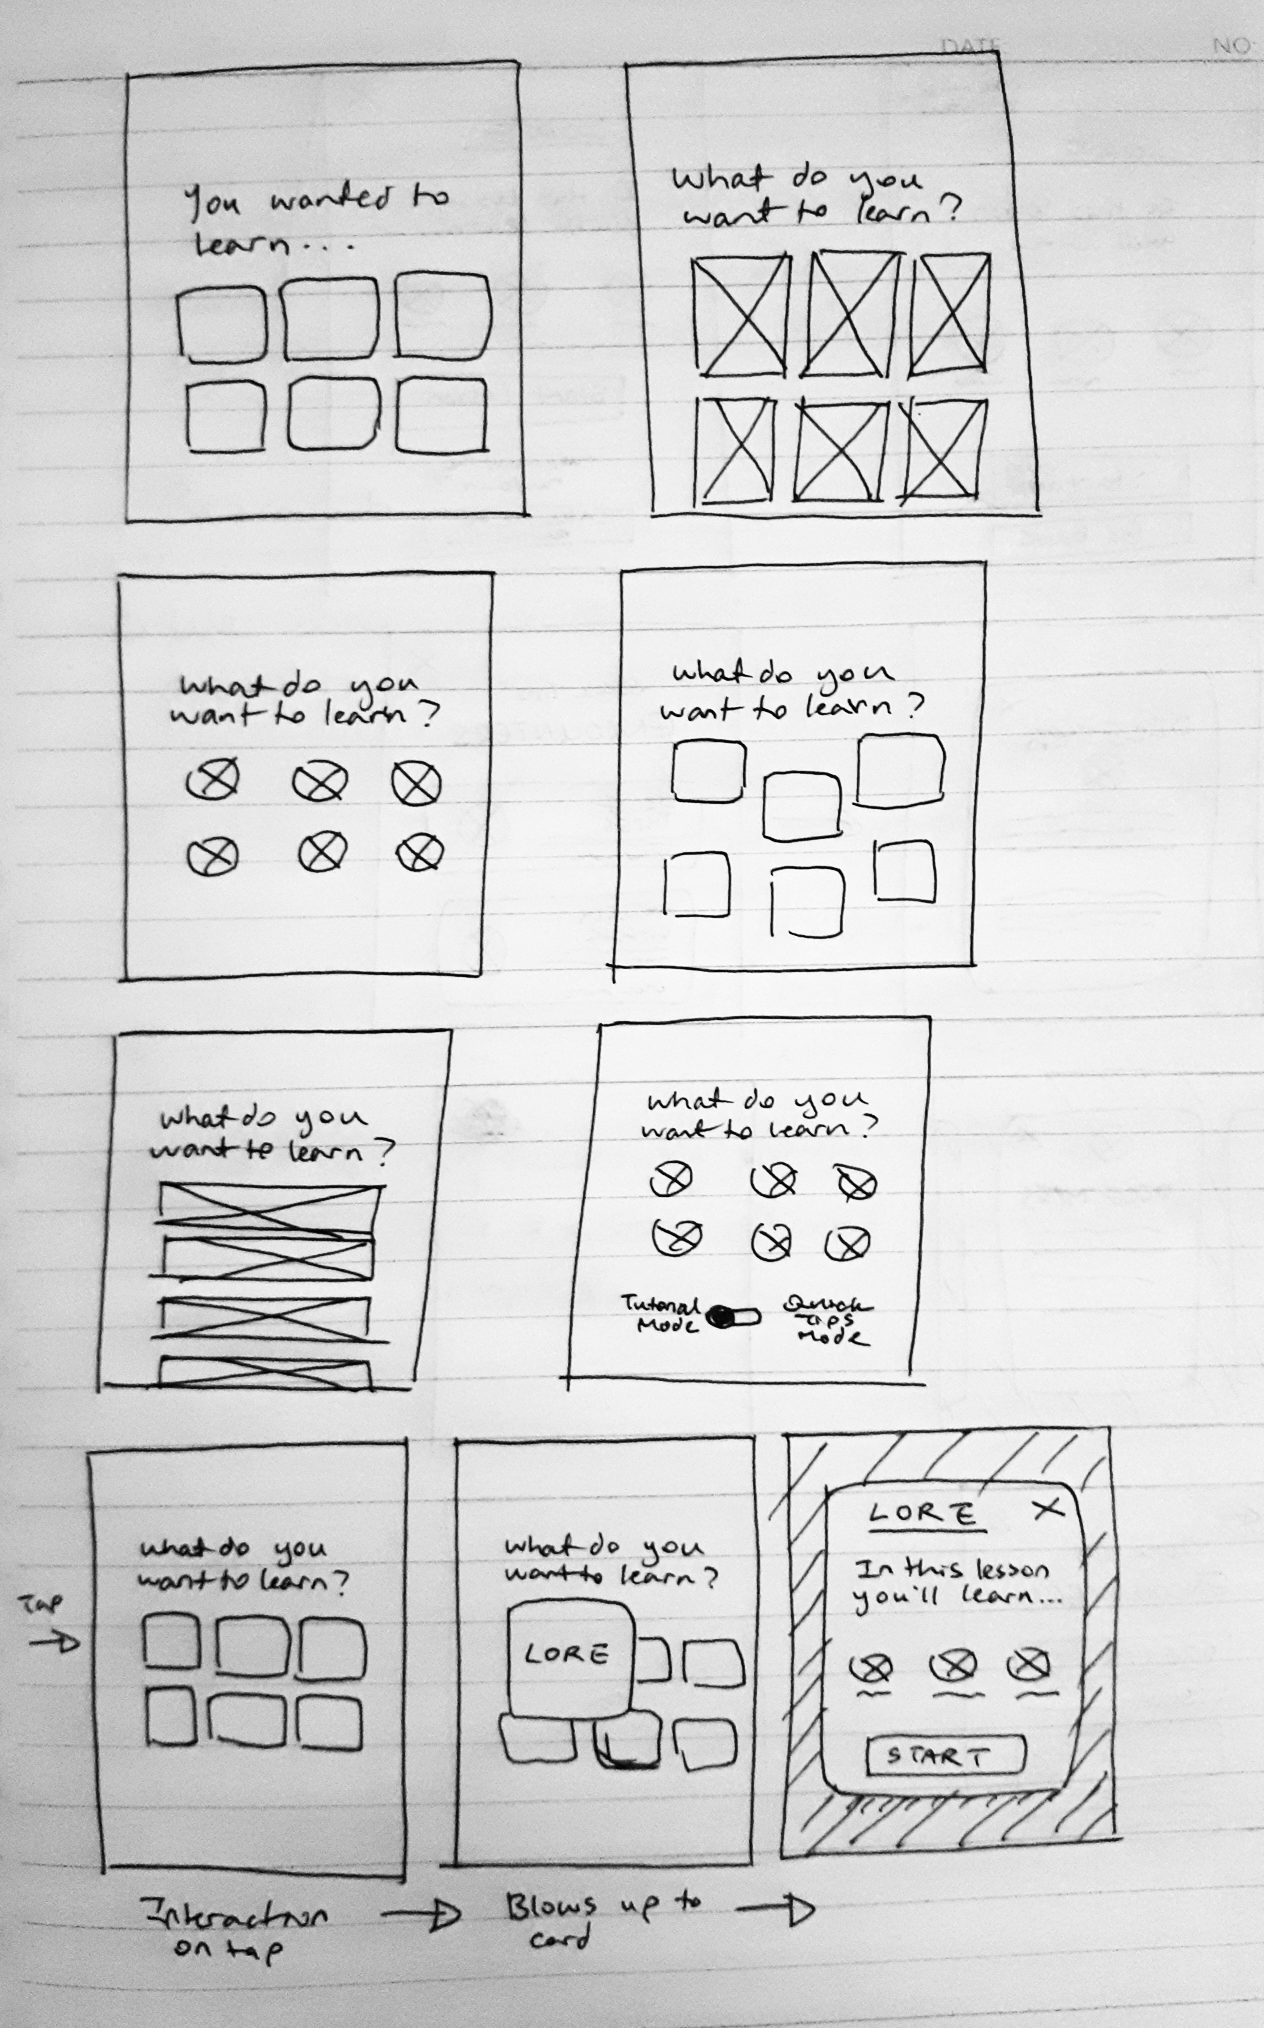 DATE
NO
You wanted to
learn...
What do you
want to learn?
What do you
want to learn?
What do you
want to learn?
What do you
want to learn?
What do you
want to learn?
Tutorial
Mode
Quick
Tips
Mode
Tap
What do you
want to learn?
What do you
want to learn?
LORE
LORE X
In this lesson
you'll learn...
START
Interaction
on tap
Blows up to
card